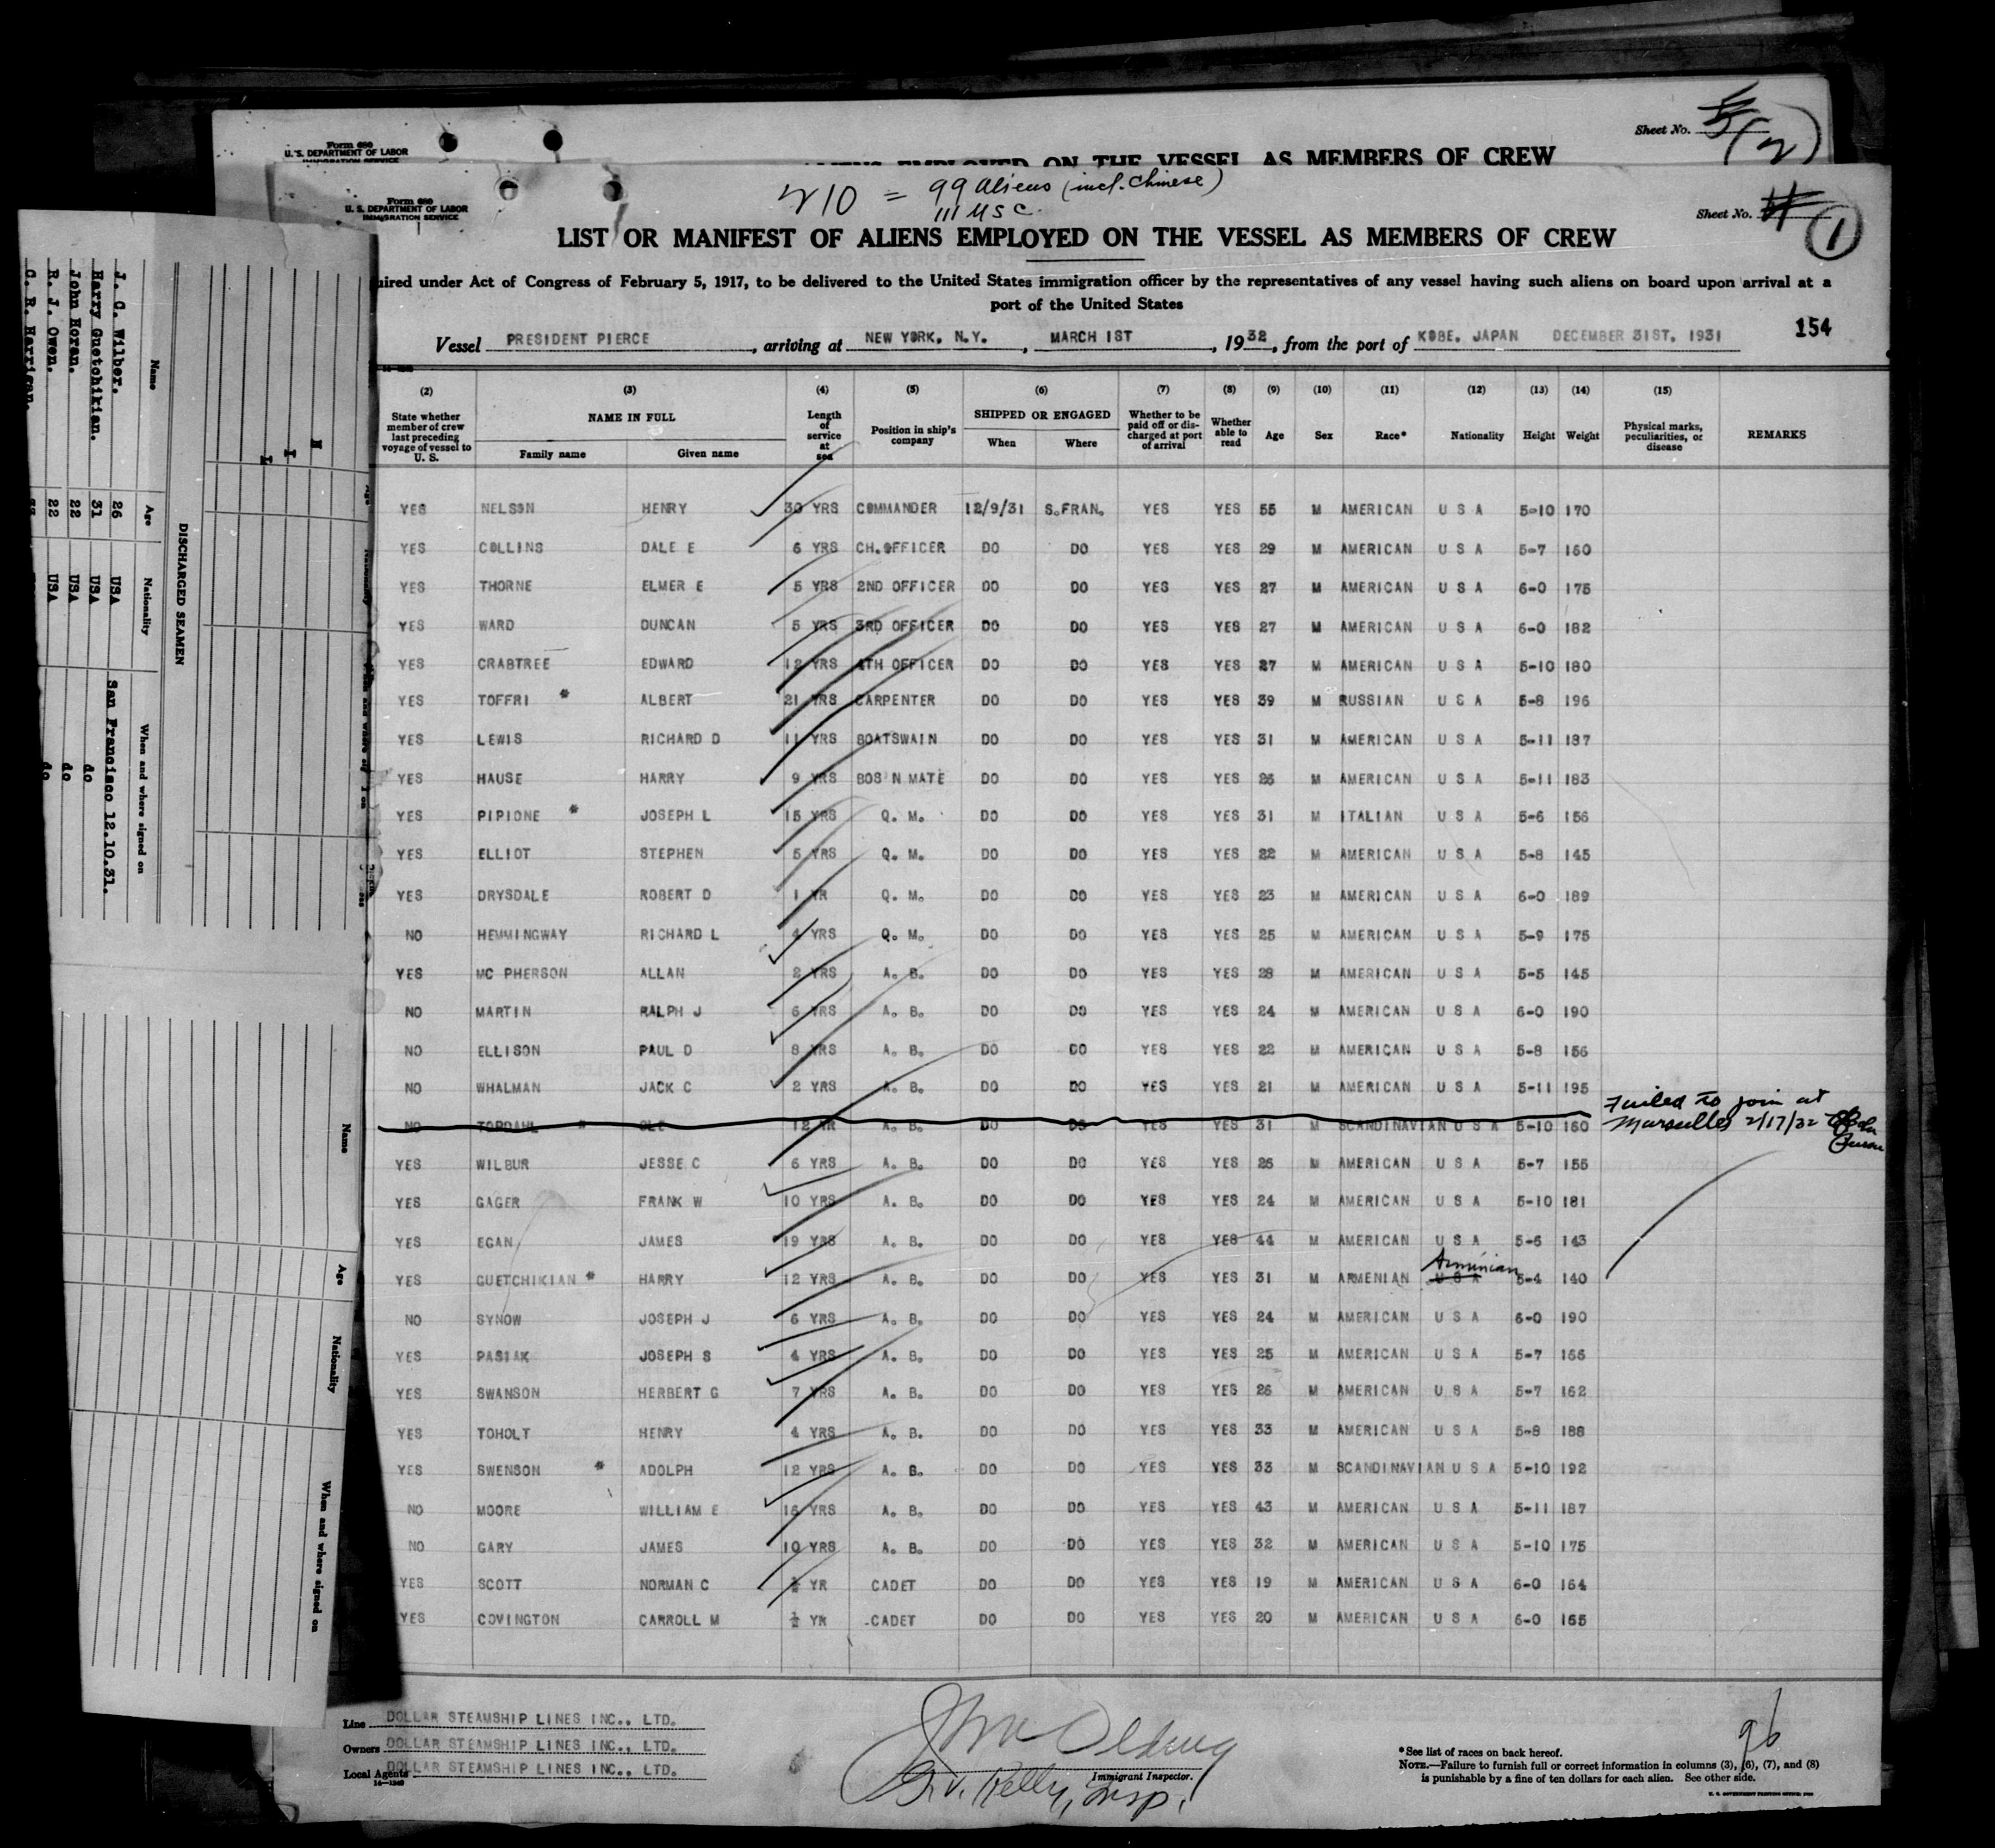 Form 680
U. S. DEPARTMENT OF LABOR
IMMIGRATION SERVICE
Sheet No.
(2)
ALIENS EMPLOYED ON THE VESSEL AS MEMBERS OF CREW
Form 680
U. S. DEPARTMENT OF LABOR
IMMIGRATION SERVICE
210 = 99 aliens (incl. Chinese)
111 USC.
Sheet No. 1
LIST OR MANIFEST OF ALIENS EMPLOYED ON THE VESSEL AS MEMBERS OF CREW
uired under Act of Congress of February 5, 1917, to be delivered to the United States immigration officer by the representatives of any vessel having such aliens on board upon arrival at a
port of the United States
Vessel PRESIDENT PIERCE, arriving at NEW YORK, N.Y., MARCH 1ST, 1932, from the port of KOBE, JAPAN DECEMBER 31ST, 1931
154
(2) (3) (4) (5) (6) (7) (8) (9) (10) (11) (12) (13) (14) (15)
State whether member of crew last preceding voyage of vessel to U. S.
NAME IN FULL
Family name Given name
Length of service at sea
Position in ship's company
SHIPPED OR ENGAGED
When Where
Whether to be paid off or discharged at port of arrival
Whether able to read
Age Sex Race* Nationality Height Weight
Physical marks, peculiarities, or disease
REMARKS
YES NELSON HENRY 30 YRS COMMANDER 12/9/31 S.FRAN. YES YES 55 M AMERICAN U S A 5-10 170
YES COLLINS DALE E 6 YRS CH.OFFICER DO DO YES YES 29 M AMERICAN U S A 5-7 160
YES THORNE ELMER E 5 YRS 2ND OFFICER DO DO YES YES 27 M AMERICAN U S A 6-0 175
YES WARD DUNCAN 5 YRS 3RD OFFICER DO DO YES YES 27 M AMERICAN U S A 6-0 182
YES CRABTREE EDWARD 12 YRS 4TH OFFICER DO DO YES YES 27 M AMERICAN U S A 5-10 180
YES TOFFRI * ALBERT 21 YRS CARPENTER DO DO YES YES 39 M RUSSIAN U S A 5-8 196
YES LEWIS RICHARD D 11 YRS BOATSWAIN DO DO YES YES 31 M AMERICAN U S A 5-11 187
YES HAUSE HARRY 9 YRS BOS'N MATE DO DO YES YES 25 M AMERICAN U S A 5-11 183
YES PIPIONE * JOSEPH L 15 YRS Q. M. DO DO YES YES 31 M ITALIAN U S A 5-6 156
YES ELLIOT STEPHEN 5 YRS Q. M. DO DO YES YES 22 M AMERICAN U S A 5-8 145
YES DRYSDALE ROBERT D 1 YR Q. M. DO DO YES YES 23 M AMERICAN U S A 6-0 189
NO HEMMINGWAY RICHARD L 4 YRS Q. M. DO DO YES YES 25 M AMERICAN U S A 5-9 175
YES MC PHERSON ALLAN 2 YRS A. B. DO DO YES YES 28 M AMERICAN U S A 5-5 145
NO MARTIN RALPH J 6 YRS A. B. DO DO YES YES 24 M AMERICAN U S A 6-0 190
NO ELLISON PAUL D 8 YRS A. B. DO DO YES YES 22 M AMERICAN U S A 5-8 156
NO WHALMAN JACK C 2 YRS A. B. DO DO YES YES 21 M AMERICAN U S A 5-11 195
NO TORDAHL * OLE 12 YR A. B. DO DO YES YES 31 M SCANDINAVIAN U S A 5-10 160 Failed to join at
Marseilles 2/17/32
YES WILBUR JESSE C 6 YRS A. B. DO DO YES YES 26 M AMERICAN U S A 5-7 155
YES GAGER FRANK W 10 YRS A. B. DO DO YES YES 24 M AMERICAN U S A 5-10 181
YES EGAN JAMES 19 YRS A. B. DO DO YES YES 44 M AMERICAN U S A 5-6 143
YES GUETCHIKIAN * HARRY 12 YRS A. B. DO DO YES YES 31 M ARMENIAN U S A Arminian 5-4 140
NO SYNOW JOSEPH J 6 YRS A. B. DO DO YES YES 24 M AMERICAN U S A 6-0 190
YES PASIAK JOSEPH S 4 YRS A. B. DO DO YES YES 25 M AMERICAN U S A 5-7 166
YES SWANSON HERBERT G 7 YRS A. B. DO DO YES YES 26 M AMERICAN U S A 5-7 162
YES TOHOLT HENRY 4 YRS A. B. DO DO YES YES 33 M AMERICAN U S A 5-8 188
YES SWENSON * ADOLPH 12 YRS A. B. DO DO YES YES 33 M SCANDINAVIAN U S A 5-10 192
NO MOORE WILLIAM E 16 YRS A. B. DO DO YES YES 43 M AMERICAN U S A 5-11 187
NO GARY JAMES 10 YRS A. B. DO DO YES YES 32 M AMERICAN U S A 5-10 175
YES SCOTT NORMAN C ½ YR CADET DO DO YES YES 19 M AMERICAN U S A 6-0 164
YES COVINGTON CARROLL M ½ YR CADET DO DO YES YES 20 M AMERICAN U S A 6-0 165
Line DOLLAR STEAMSHIP LINES INC., LTD.
Owners DOLLAR STEAMSHIP LINES INC., LTD.
Local Agents DOLLAR STEAMSHIP LINES INC., LTD.
Immigrant Inspector.
G. V. Kelly, Insp.
96
*See list of races on back hereof.
NOTE.—Failure to furnish full or correct information in columns (3), (6), (7), and (8)
is punishable by a fine of ten dollars for each alien. See other side.
DISCHARGED SEAMEN
Name Age Nationality When and where signed on
J. C. Wilber. 26 USA San Francisco 12.10.31.
Harry Guetchikian. 31 USA do
John Horan. 22 USA do
R. J. Owen. 22 USA do
C. R. Harrigan.
Name Age Nationality When and where signed on